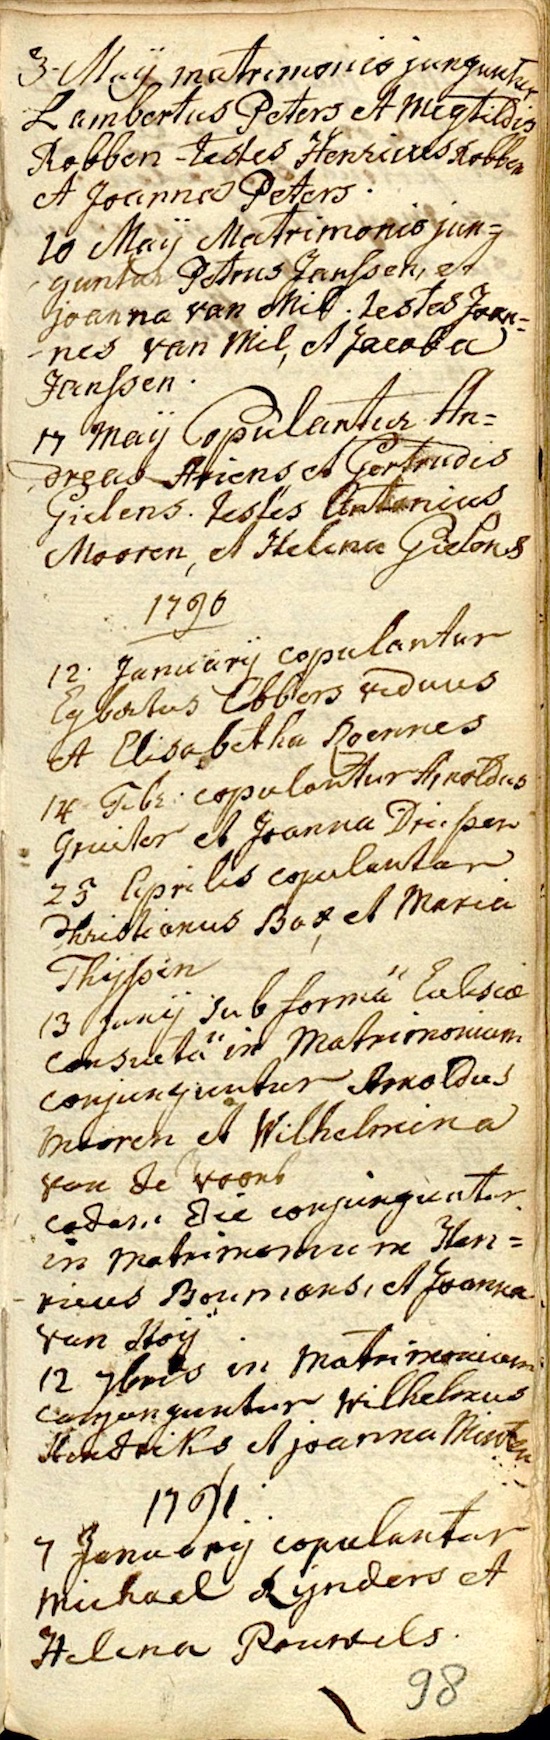 3 Maÿ matrimonio junguntur
Lambertus Peters et Megtildis
Robben testes Henricus Robben
et Joanna Peters.
10 Maÿ Matrimonio jun=
guntur Petrus Janssen, et
joanna van Mil. testes Joan=
nes van Mil, et Jacoba
Janssen.
17 Maÿ Copulantur An=
dreas Ariens et Gertrudis
Gielens. testes Antonius
Mooren, et Helena Gielens
1790
12. Januarÿ copulantur
Egbertus Ebbers viduus
et Elisabetha Roennes
14 Febr: copulantur Arnoldus
Gruiter et Joanna Driessen
25 Aprilis copulantur
Christianus Bax et Maria
Thijssen
13 Junÿ sub forma Eclesiæ
consueta in Matrimonium
conjunguntur Arnoldus
Mooren et Wilhelmina
van de Voort
eadem die conjunguntur
in matrimonium Hen=
ricus Boumans, et Joanna
van Hoÿ
12 7bris in Matrimonium
conjunguntur Wilhelmus
Hendriks et joanna
1791
7 Januarÿ copulantur
Michael Rÿnders et
Helena Pouwels.
98